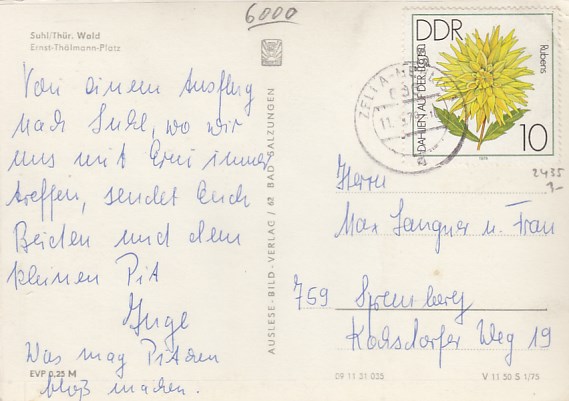 6000
Suhl/Thür. Wald
Ernst-Thälmann-Platz
Von einem Ausflug
nach Suhl, wo wir
uns mit Erni immer
treffen, sendet Euch
Beiden und dem
kleinen Pit
Inge
Was mag Pitchen
bloß machen.
EVP 0,25 M
AUSLESE-BILD-VERLAG / 62 BAD SALZUNGEN
DDR
Rubens
DAHLIEN AUF DER
10
1979
ZELLA-ME
2435
Herrn
Max Langner u. Frau
759 Spremberg
Kochsdorfer Weg 19
09 11 31 035
V 11 50 S 1/75